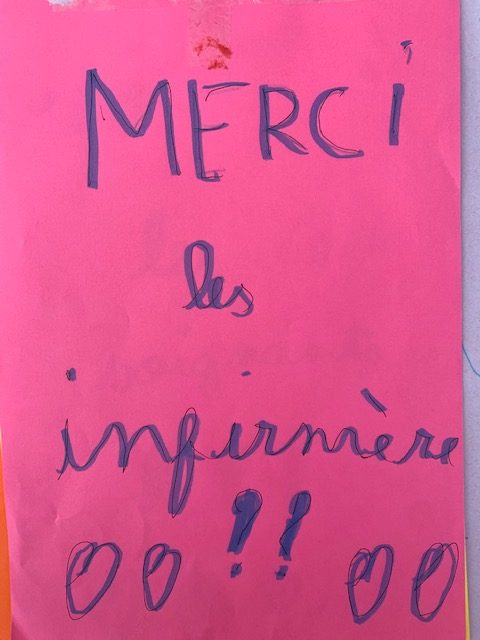 MERCi
les
infirmière
!!